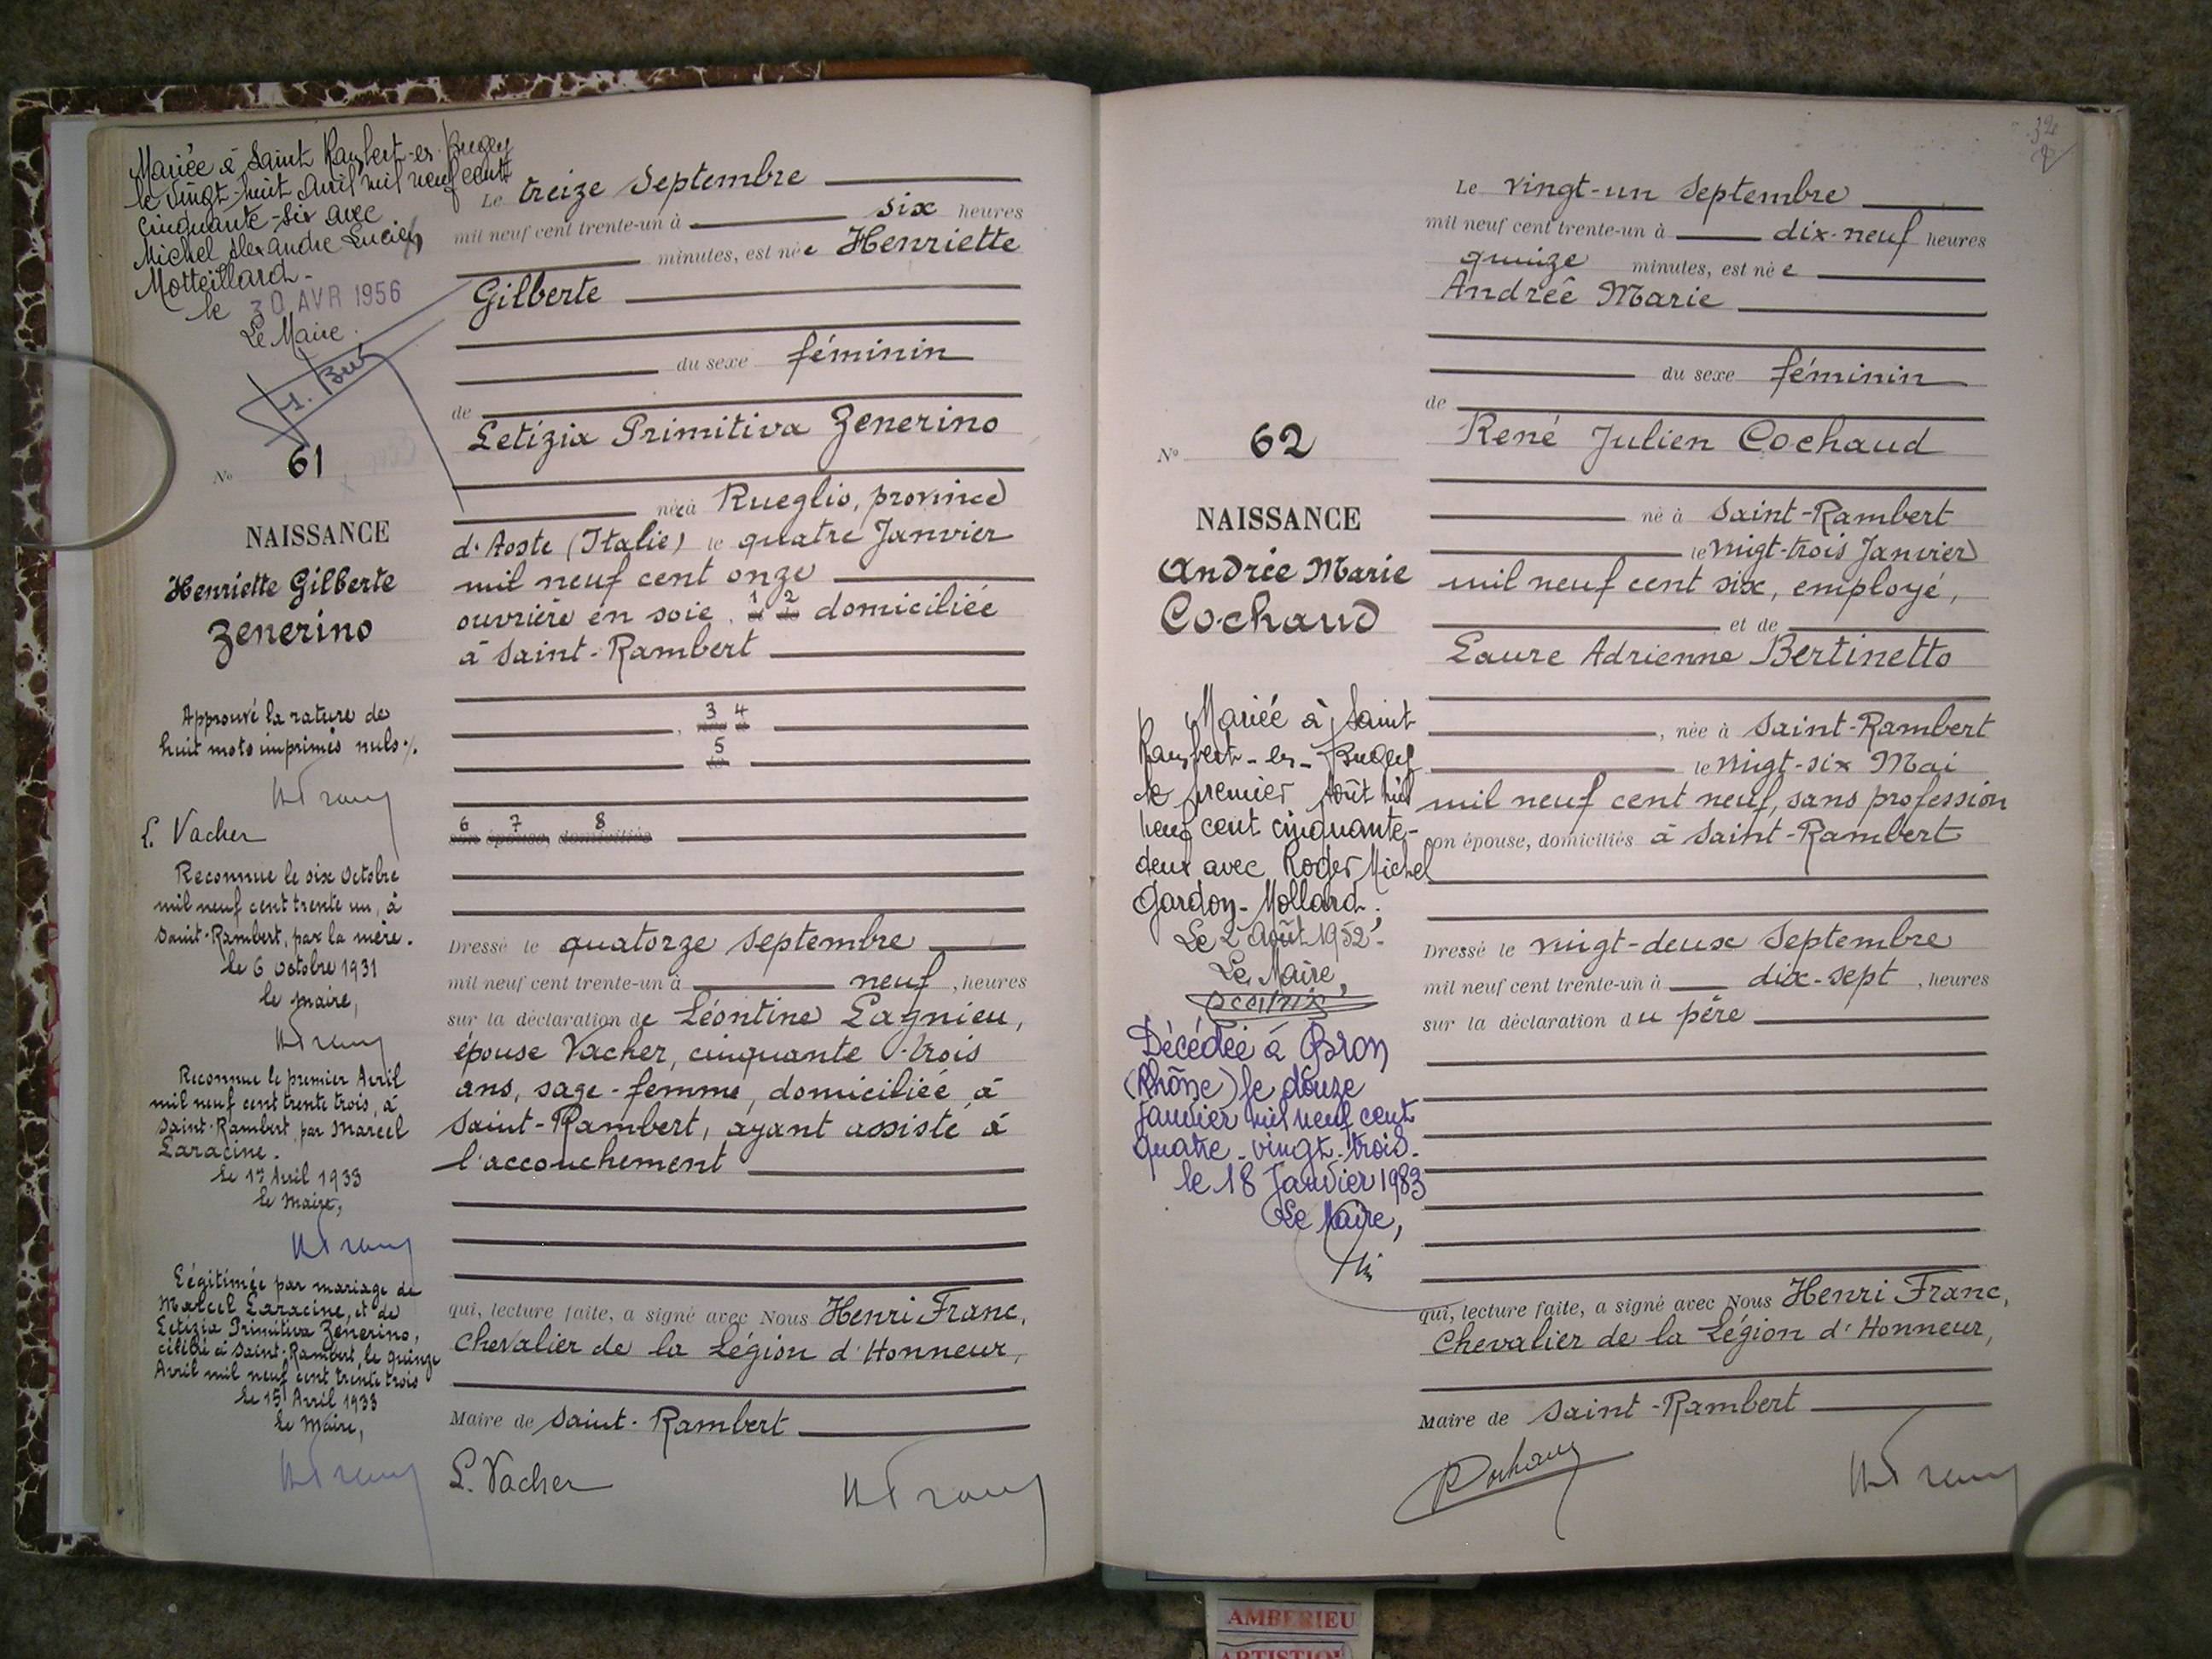 Mariée à Saint Rambert-en-Bugey
le vingt-huit avril mil neuf cent
cinquante-six avec
Michel Alexandre Lucien
Motteillard.
le 30 AVR 1956
Le Maire.
No 61
NAISSANCE
Henriette Gilberte
Zenerino
Approuvé la rature de
huit mots imprimés nuls ./.
HFranc
L. Vacher
Reconnue le six Octobre
mil neuf cent trente un, à
Saint-Rambert, par la mère.
le 6 Octobre 1931
le maire,
HFranc
Reconnue le premier Avril
mil neuf cent trente trois, à
Saint-Rambert, par Marcel
Laracine.
le 1er Avril 1933
le Maire,
HFranc
Légitimée par mariage de
Marcel Laracine, et de
Letizia Primitiva Zenerino,
célébré à Saint-Rambert, le quinze
Avril mil neuf cent trente trois
le 15 Avril 1933
le Maire,
HFranc
Le treize Septembre
mil neuf cent trente-un à six heures
minutes, est née Henriette
Gilberte
du sexe féminin
de
Letizia Primitiva Zenerino
née à Rueglio, province
d'Aoste (Italie) le quatre Janvier
mil neuf cent onze
ouvrière en soie, 1 2 domiciliée
à Saint-Rambert
3 4
5
6 7 8
son épouse, domiciliés
Dressé le quatorze Septembre
mil neuf cent trente-un à neuf, heures
sur la déclaration de Léontine Lagnieu,
épouse Vacher, cinquante-trois
ans, sage-femme, domiciliée à
Saint-Rambert, ayant assisté à
l'accouchement
qui, lecture faite, a signé avec Nous Henri Franc,
Chevalier de la Légion d'Honneur,
Maire de Saint-Rambert
L. Vacher HFranc
32
No 62
NAISSANCE
Andrée Marie
Cochaud
Mariée à Saint
Rambert-en-Bugey
le premier Août mil
neuf cent cinquante-
deux avec Roger Michel
Gardon-Mollard.
Le 2 Août 1952.
Le Maire,
Décédée à Bron
(Rhône) le douze
janvier mil neuf cent
quatre-vingt-trois.
le 18 Janvier 1983
Le Maire,
Le vingt-un Septembre
mil neuf cent trente-un à dix-neuf heures
quinze minutes, est née
Andrée Marie
du sexe féminin
de
René Julien Cochaud
né à Saint-Rambert
le vingt-trois Janvier
mil neuf cent six, employé,
et de
Laure Adrienne Bertinetto
, née à Saint-Rambert
le vingt-six Mai
mil neuf cent neuf, sans profession
son épouse, domiciliés à Saint-Rambert
Dressé le vingt-deux Septembre
mil neuf cent trente-un à dix-sept, heures
sur la déclaration du père
qui, lecture faite, a signé avec Nous Henri Franc,
Chevalier de la Légion d'Honneur,
Maire de Saint-Rambert
RCochaud HFranc
AMBERIEU